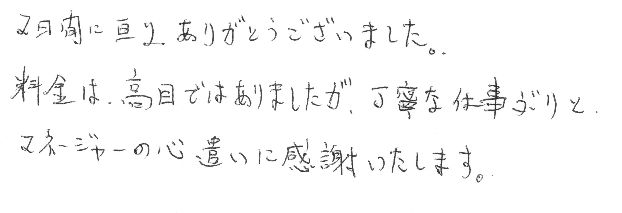 2日間に亘り、ありがとうございました。
料金は、高目ではありましたが、丁寧な仕事ぶりと、
マネージャーの心遣いに感謝いたします。